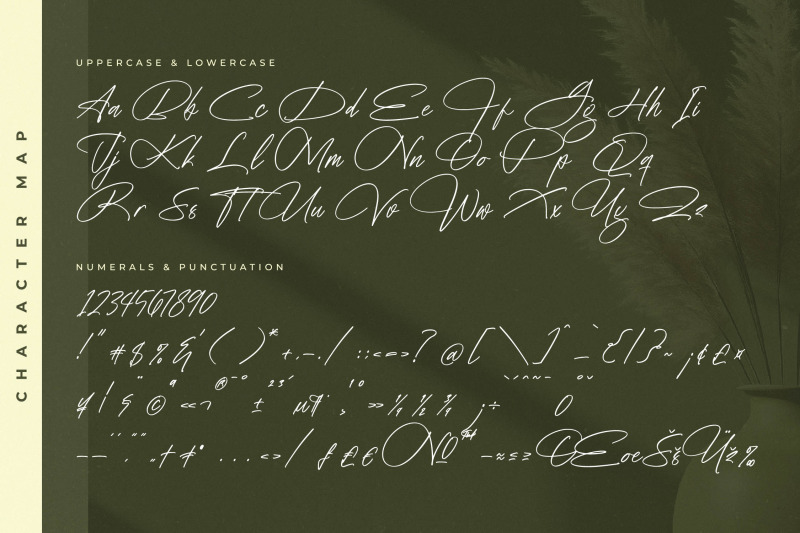 CHARACTER MAP
UPPERCASE & LOWERCASE
Aa Bb Cc Dd Ee Ff Gg Hh Ii
Jj Kk Ll Mm Nn Oo Pp Qq
Rr Ss Tt Uu Vv Ww Xx Yy Zz
NUMERALS & PUNCTUATION
1234567890
!" #$%&' ( ) * +,-./ :;<=>? @[ \ ]^ _ ` {|}~ ¡¢£¤
¥ ¦ § ¨ © ª «¬ ®¯° ± ²³´ µ¶ ¸ ¹º »¼½¾ ¿÷
–— ‘’‚ “”„ †‡• ... ‹›⁄ ƒ₤€ №™ −≈≤≥ ŒœŠšŸž‰